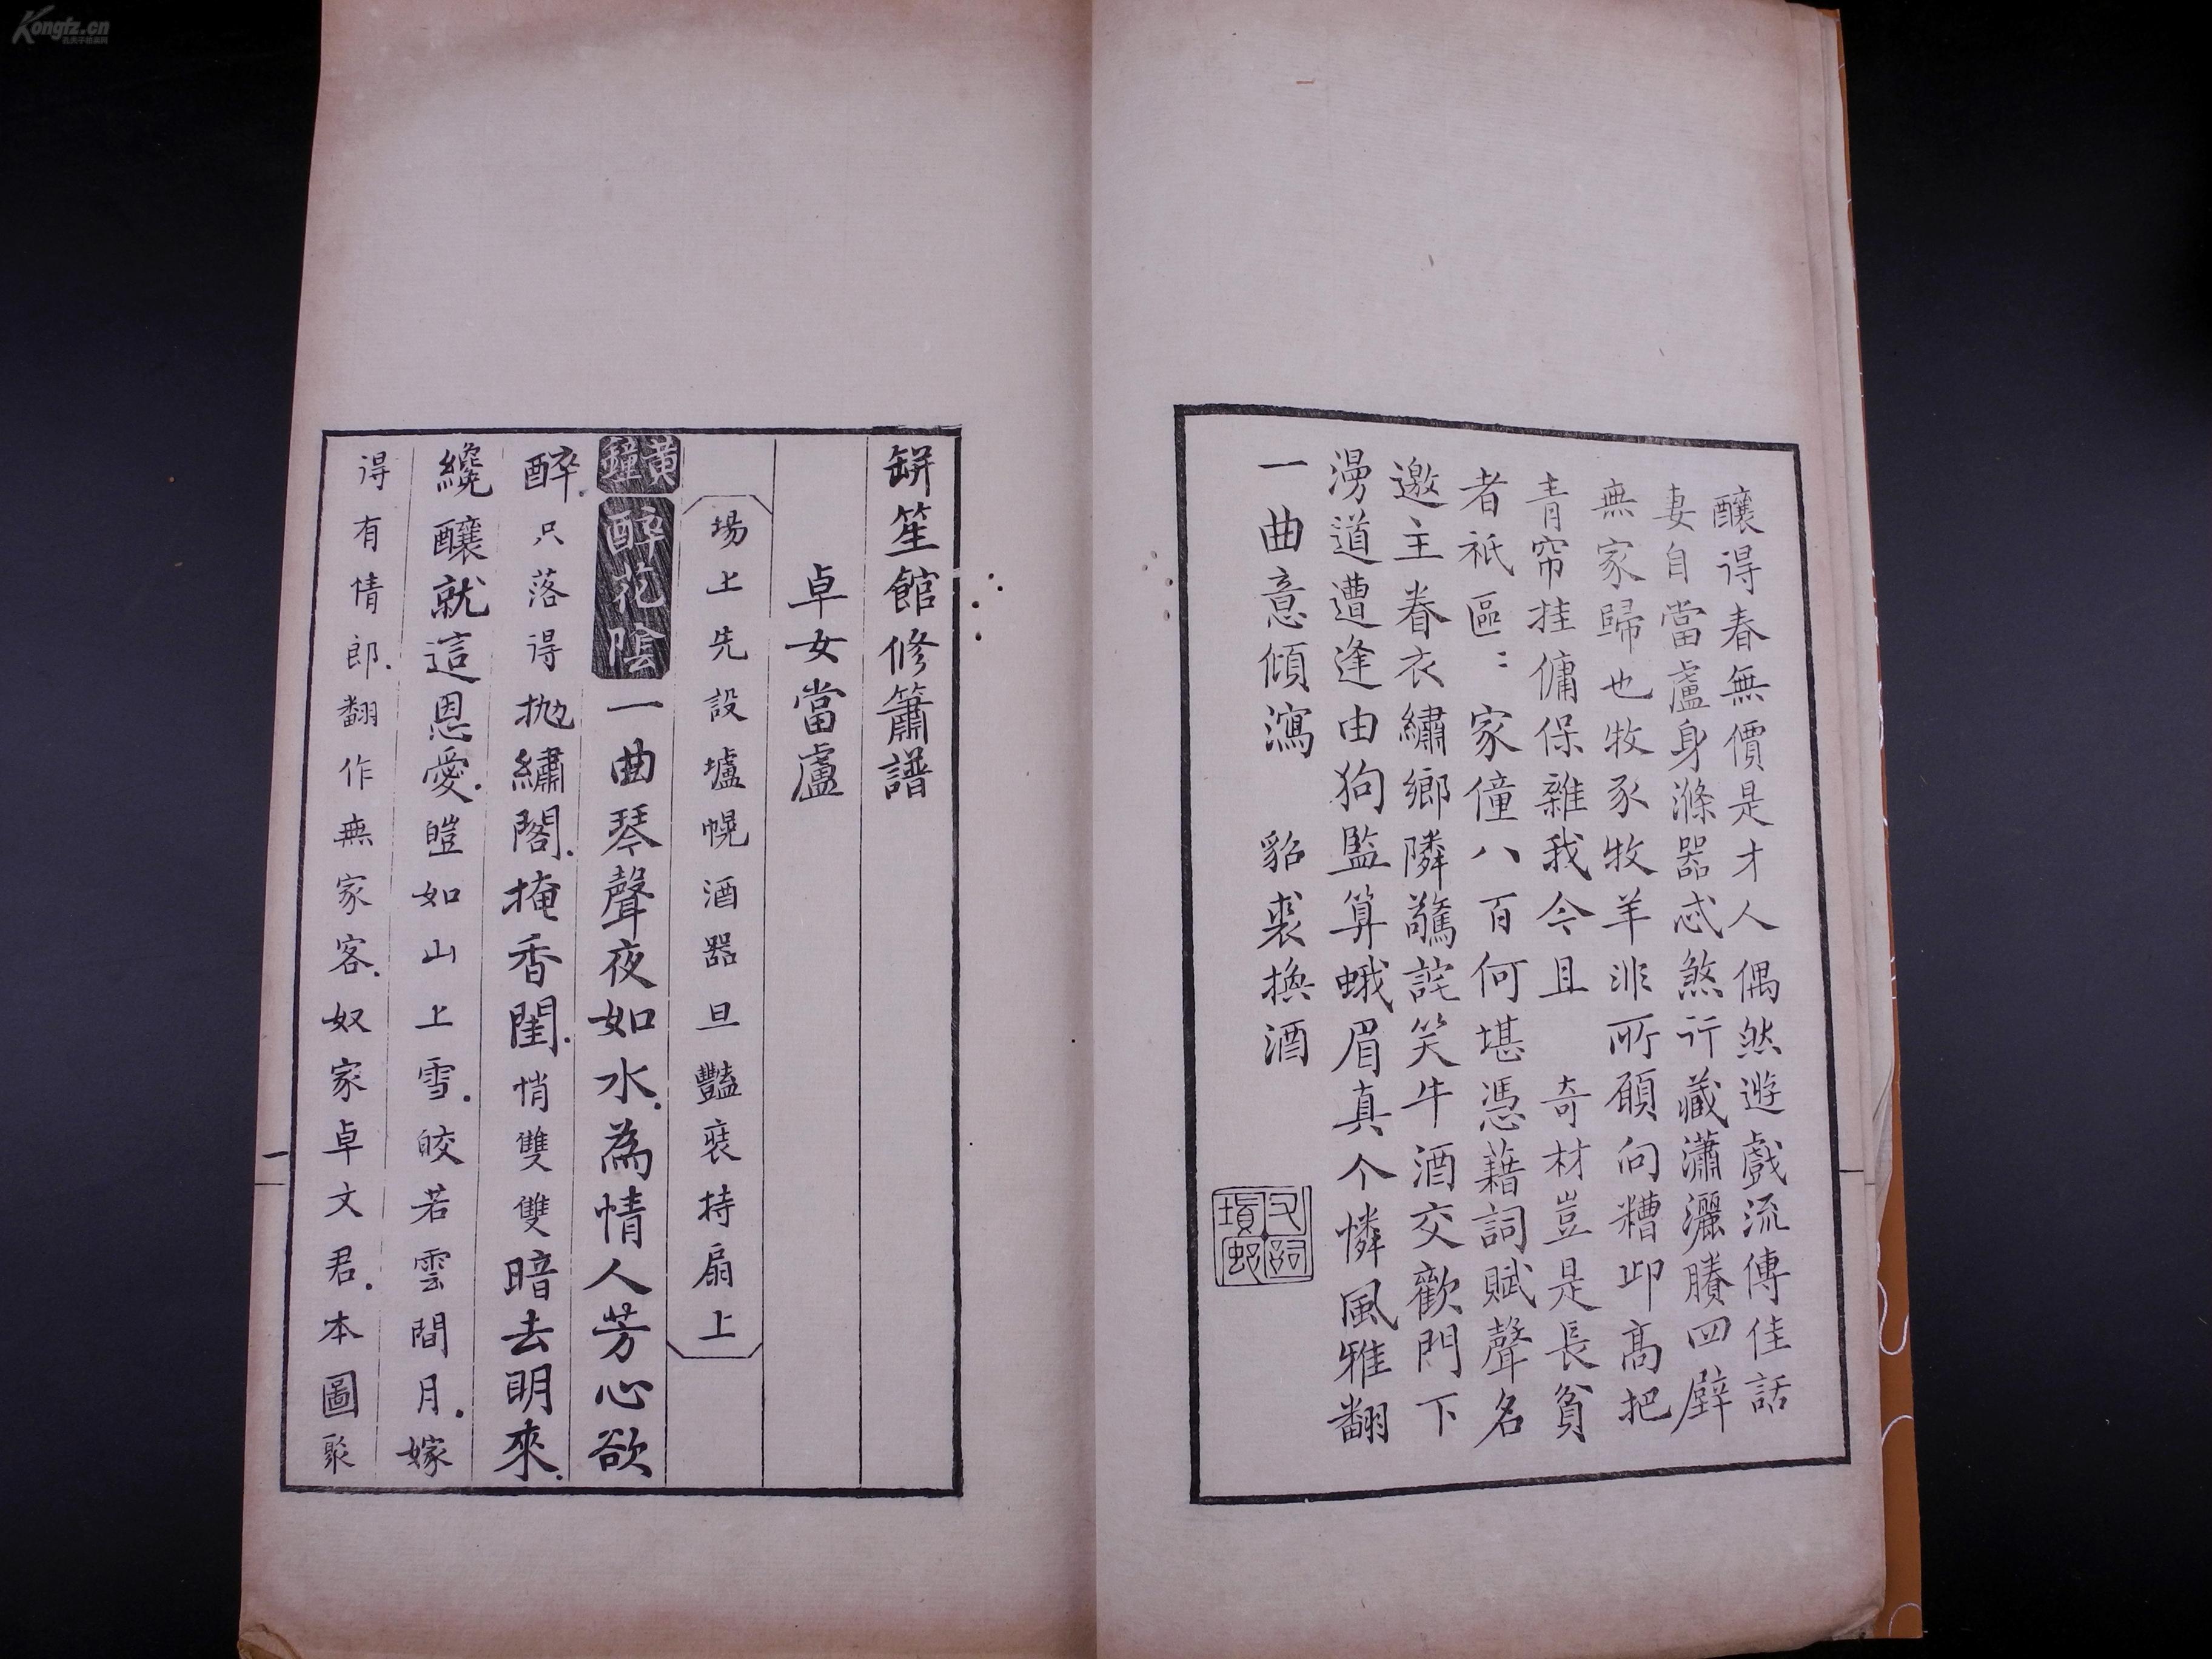 釀得春無價是才人偶然遊戲流傳佳話
妻自當盧身滌器忒煞行藏瀟灑賸四壁
無家歸也牧豕牧羊非所願向糟邱高把
青帘挂傭保雜我今且 奇材豈是長貧
者祇區〻家僮八百何堪憑藉詞賦聲名
邀主眷衣繡鄉隣驚詫笑牛酒交歡門下
漫道遭逢由狗監算蛾眉真个憐風雅翻
一曲意傾瀉 貂裘換酒
缾笙館修簫譜
卓女當盧
場上先設壚幌酒器旦豔裝持扇上
黃鐘 醉花陰 一曲琴聲夜如水.為情人芳心欲
醉.只落得拋繡閣.掩香閨.悄雙雙暗去明來.
纔釀就這恩愛.皚如山上雪.皎若雲間月.嫁
得有情郎.翻作無家客.奴家卓文君.本圖聚
一
Kongfz.cn